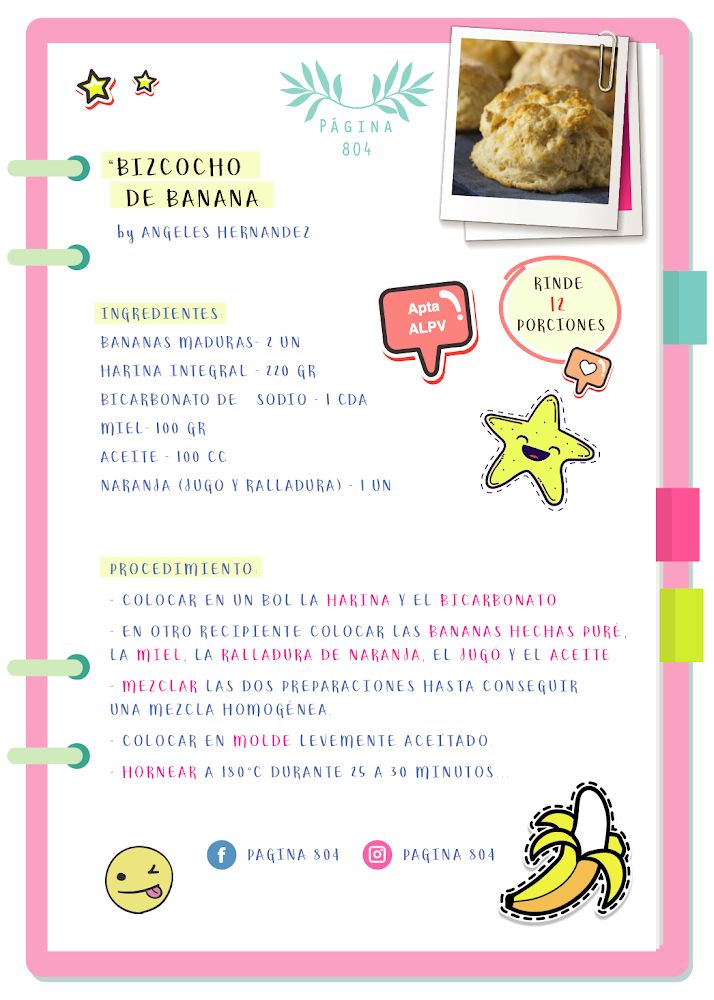 PÁGINA
804
“BIZCOCHO
DE BANANA
by ANGELES HERNANDEZ
INGREDIENTES:
BANANAS MADURAS- 2 UN
HARINA INTEGRAL - 220 GR
BICARBONATO DE SODIO - 1 CDA
MIEL- 100 GR
ACEITE - 100 CC
NARANJA (JUGO Y RALLADURA) - 1 UN
Apta
ALPV
RINDE
12
PORCIONES
PROCEDIMIENTO:
- COLOCAR EN UN BOL LA HARINA Y EL BICARBONATO
- EN OTRO RECIPIENTE COLOCAR LAS BANANAS HECHAS PURÉ,
LA MIEL, LA RALLADURA DE NARANJA, EL JUGO Y EL ACEITE.
- MEZCLAR LAS DOS PREPARACIONES HASTA CONSEGUIR
UNA MEZCLA HOMOGÉNEA.
- COLOCAR EN MOLDE LEVEMENTE ACEITADO.
- HORNEAR A 180°C DURANTE 25 A 30 MINUTOS...
PAGINA 804
PAGINA 804